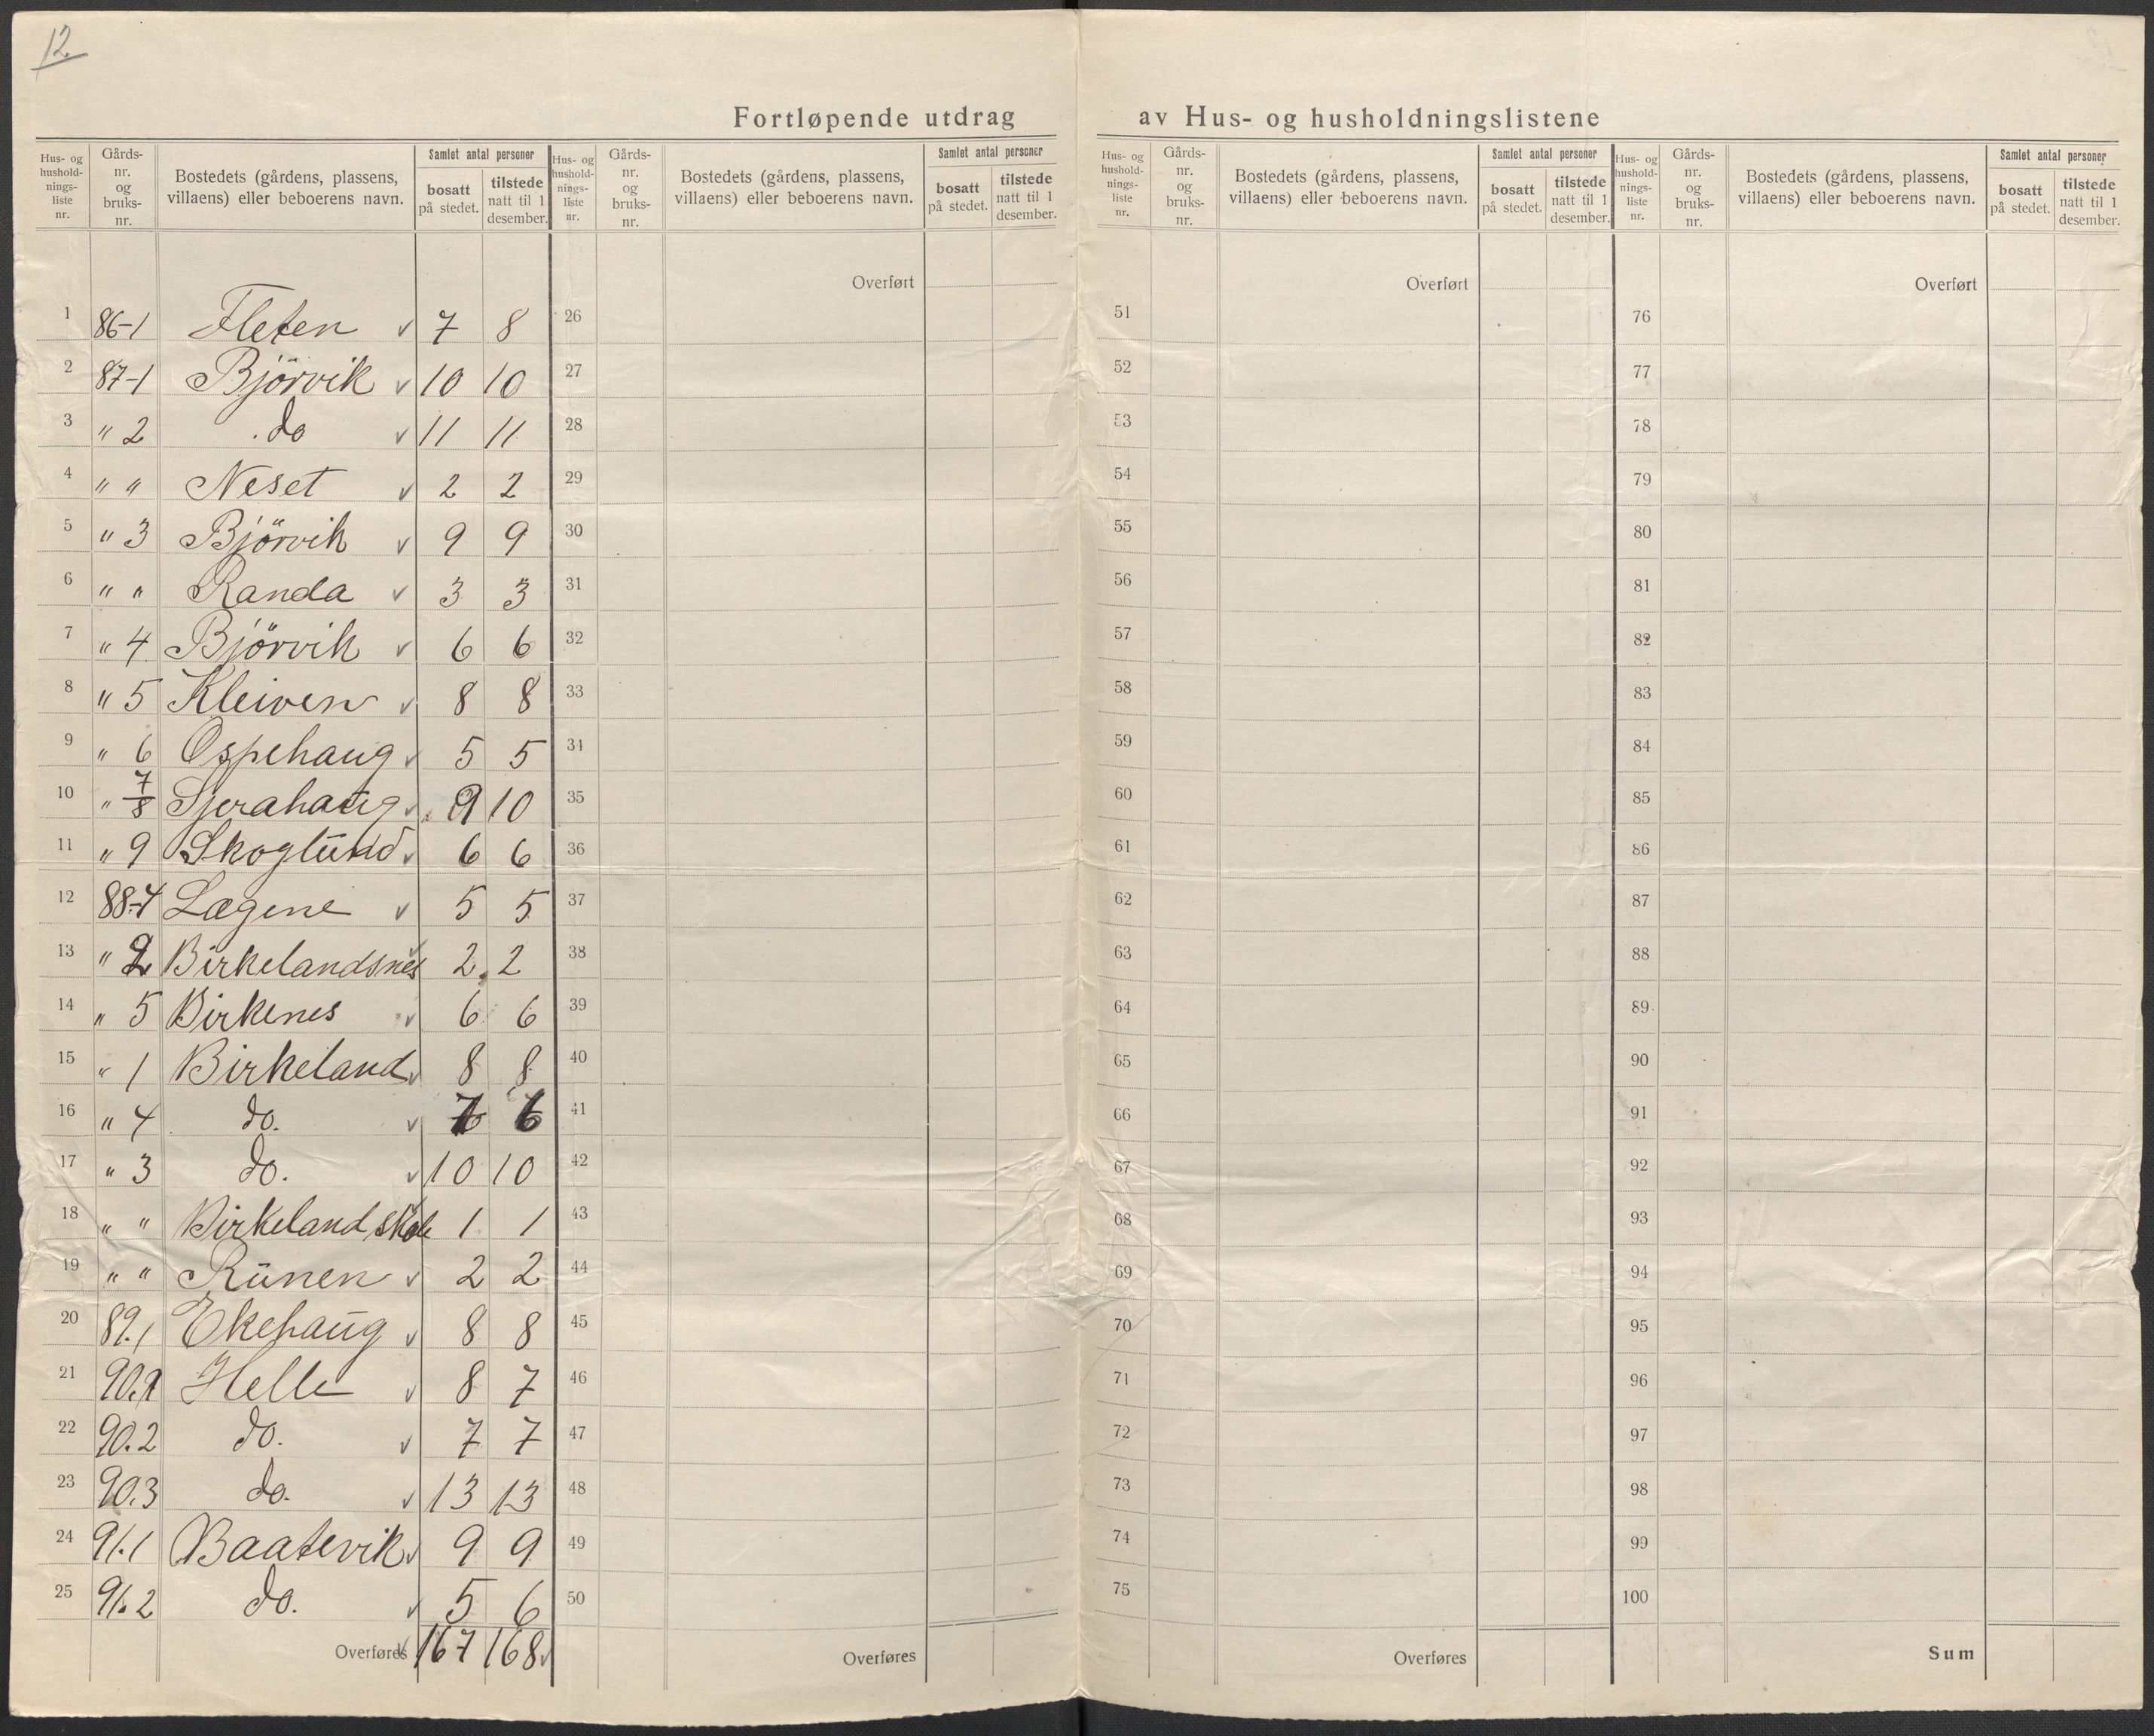 12.
Fortløpende utdrag av Hus- og husholdningslistene
Hus- og husholdnings-liste nr. Gårds-nr. og bruks-nr. Bostedets (gårdens, plassens, villaens) eller beboerens navn. Samlet antal personer bosatt på stedet. tilstede natt til 1 desember.
Hus- og husholdnings-liste nr. Gårds-nr. og bruks-nr. Bostedets (gårdens, plassens, villaens) eller beboerens navn. Samlet antal personer bosatt på stedet. tilstede natt til 1 desember.
Hus- og husholdnings-liste nr. Gårds-nr. og bruks-nr. Bostedets (gårdens, plassens, villaens) eller beboerens navn. Samlet antal personer bosatt på stedet. tilstede natt til 1 desember.
Hus- og husholdnings-liste nr. Gårds-nr. og bruks-nr. Bostedets (gårdens, plassens, villaens) eller beboerens navn. Samlet antal personer bosatt på stedet. tilstede natt til 1 desember.
Overført Overført Overført
1 86-1 Fleten v 7 8 26 51 76
2 87-1 Björvik v 10 10 27 52 77
3 " 2 do v 11 11 28 53 78
4 " " Neset v 2 2 29 54 79
5 " 3 Björvik v 9 9 30 55 80
6 " " Randa v 3 3 31 56 81
7 " 4 Björvik v 6 6 32 57 82
8 " 5 Kleiven v 8 8 33 58 83
9 " 6 Ospehaug v 5 5 34 59 84
10 " 7/8 v 9 10 35 60 85
11 " 9 Skoglund v 6 6 36 61 86
12 88-4 Lægene v 5 5 37 62 87
13 " 2 Birkelandsnes v 2 2 38 63 88
14 " 5 Birkenes v 6 6 39 64 89
15 " 1 Birkeland v 8 8 40 65 90
16 " 4 do. v 7 6 41 66 91
17 " 3 do. v 10 10 42 67 92
18 " " Birkeland skole 1 1 43 68 93
19 " " Runen v 2 2 44 69 94
20 89.1 Ekehaug v 8 8 45 70 95
21 90.1 Helle v 8 7 46 71 96
22 90.2 do. v 7 7 47 72 97
23 90.3 do. v 13 13 48 73 98
24 91.1 Baatevik v 9 9 49 74 99
25 91.2 do. v 5 6 50 75 100
Overføres v 167 168 v Overføres Overføres Sum